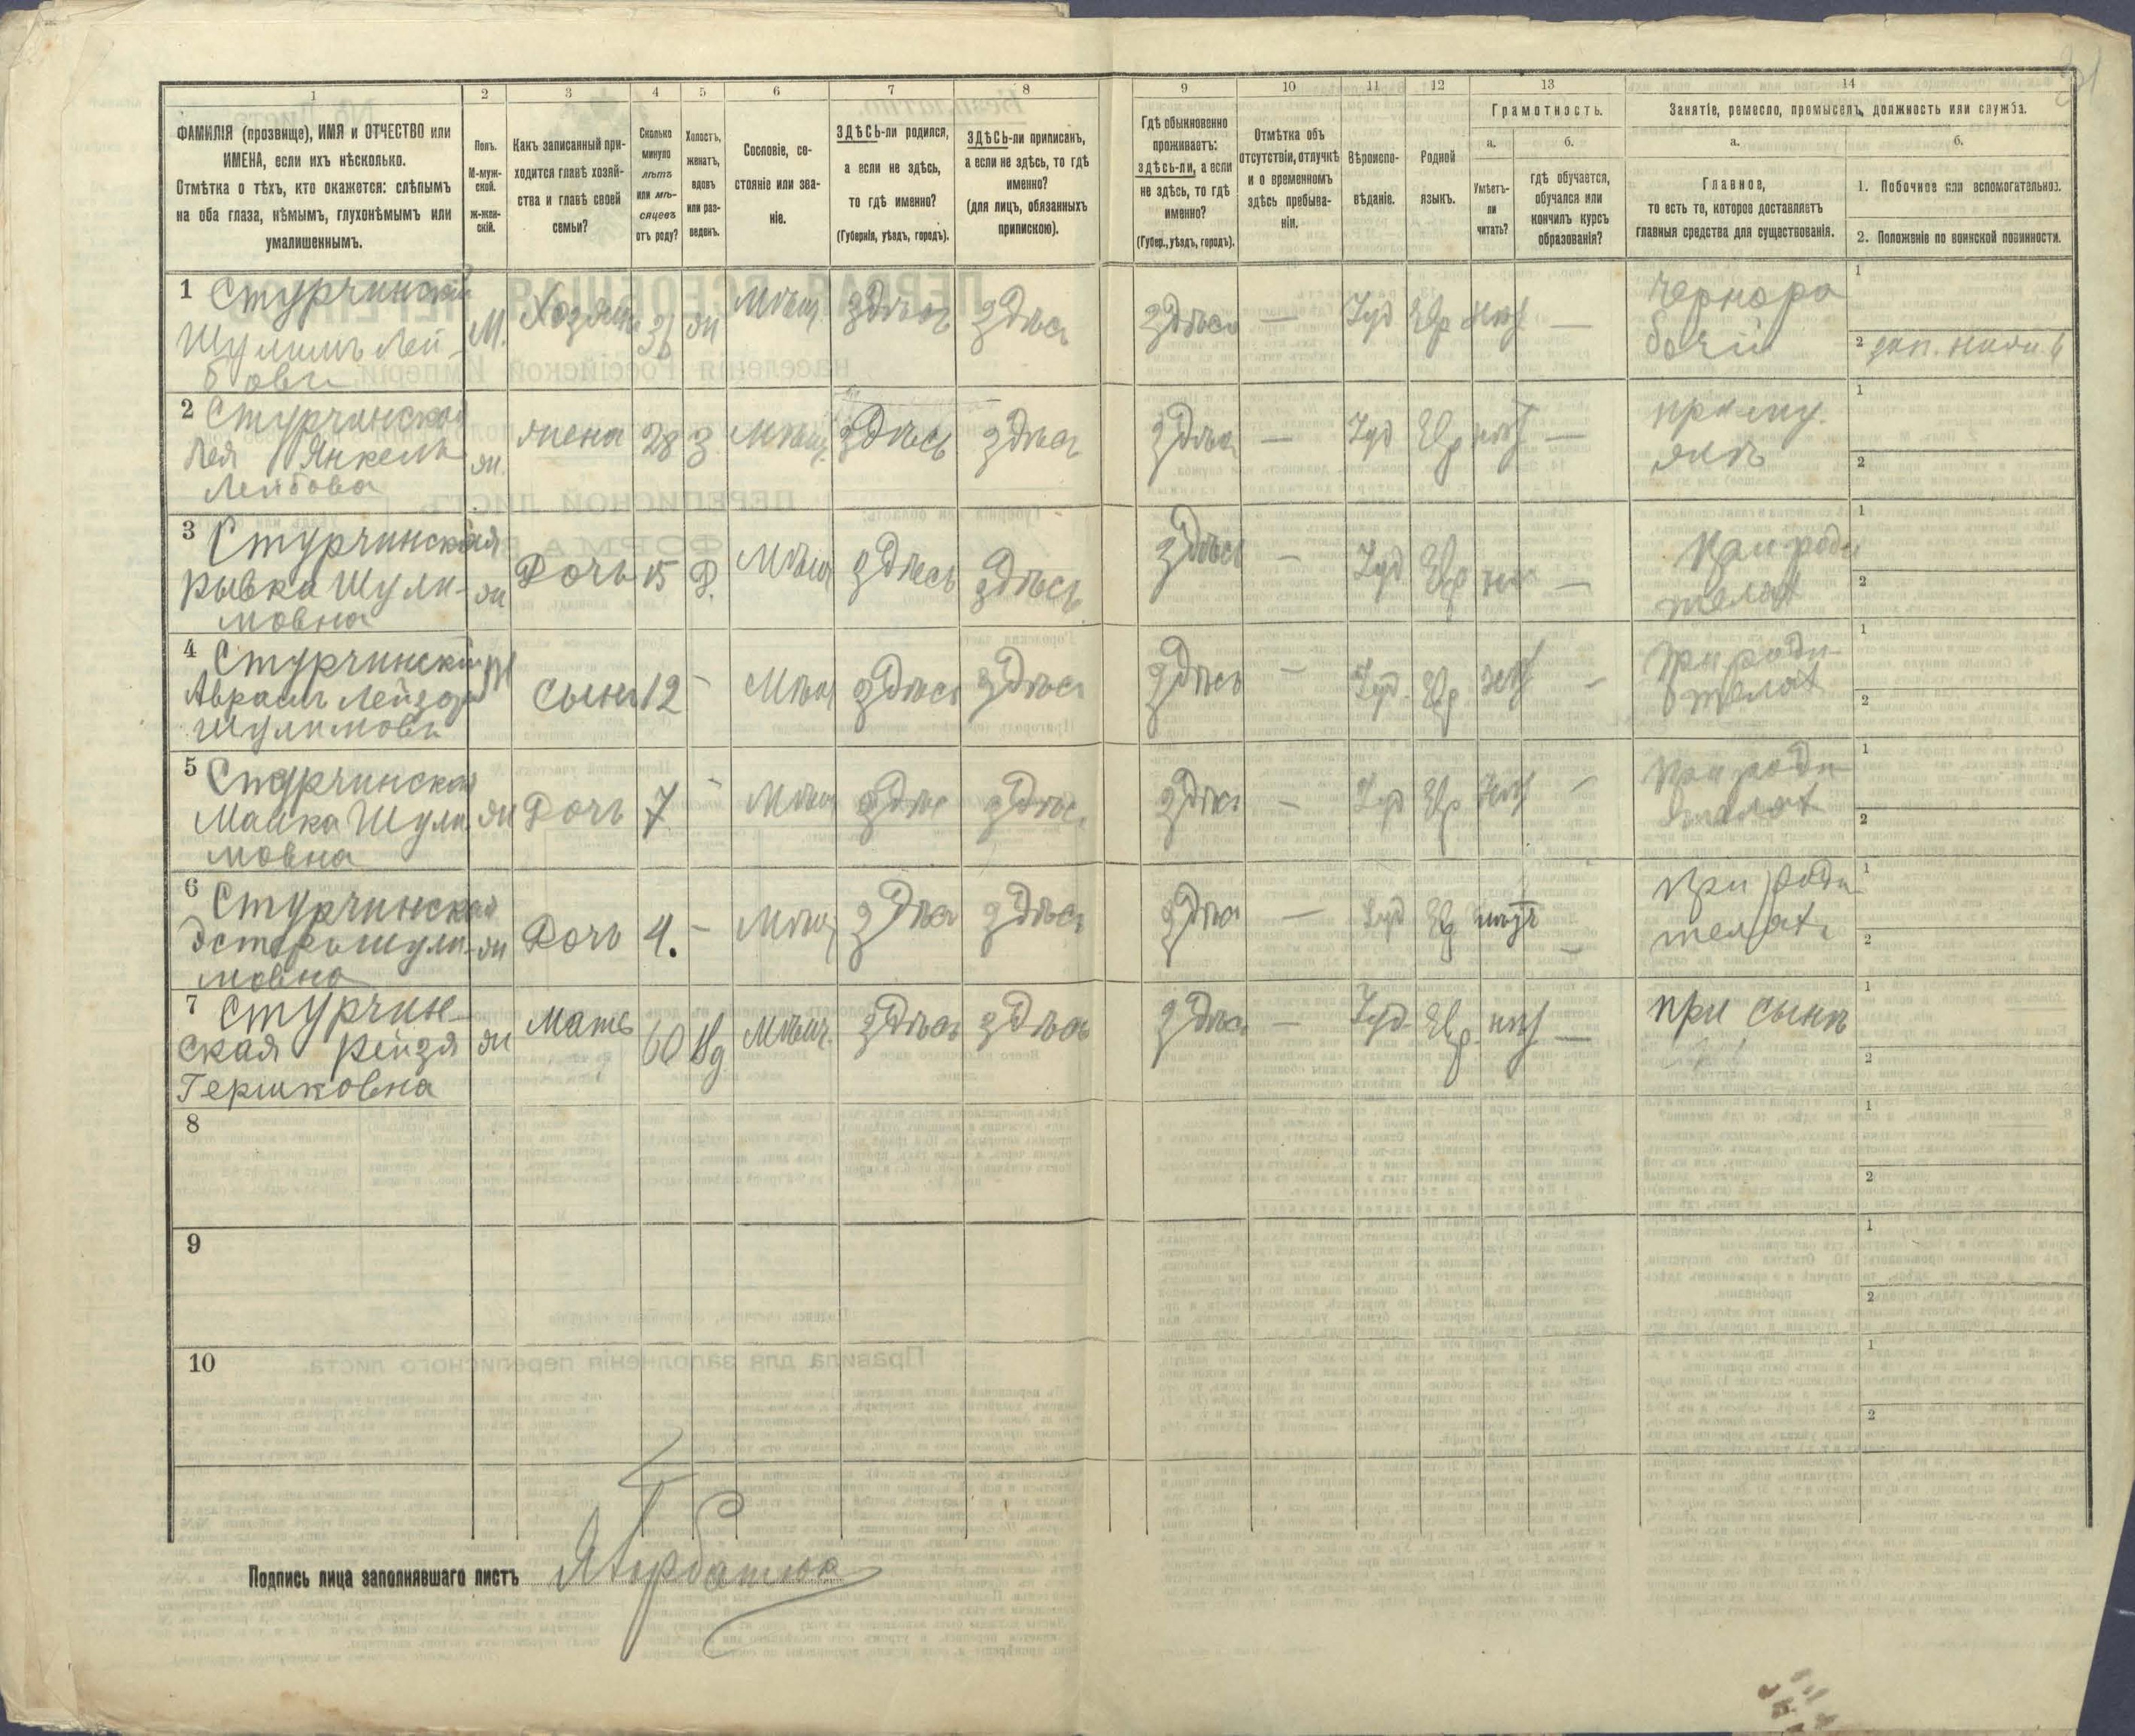 1 2 3 4 5 6 7 8 9 10 11 12 13 14
ФАМИЛІЯ (прозвище), ИМЯ и ОТЧЕСТВО или
ИМЕНА, если ихъ нѣсколько.
Отмѣтка о тѣхъ, кто окажется: слѣпымъ
на оба глаза, нѣмымъ, глухонѣмымъ или
умалишеннымъ.
Полъ.
М-муж-
ской.
Ж-жен-
скій.
Какъ записанный при-
ходится главѣ хозяй-
ства и главѣ своей
семьи?
Сколько
минуло
лѣтъ
или мѣ-
сяцевъ
отъ роду?
Холостъ,
женатъ,
вдовъ
или раз-
веденъ.
Сословіе, со-
стояніе или зва-
ніе.
ЗДѢСЬ-ли родился,
а если не здѣсь,
то гдѣ именно?
(Губернія, уѣздъ, городъ).
ЗДѢСЬ-ли приписанъ,
а если не здѣсь, то гдѣ
именно?
(для лицъ, обязанныхъ
припискою).
Гдѣ обыкновенно
проживаетъ:
здѣсь-ли, а если
не здѣсь, то гдѣ
именно?
(Губер., уѣздъ, городъ).
Отмѣтка объ
отсутствіи, отлучкѣ
и о временномъ
здѣсь пребыва-
ніи.
Вѣроиспо-
вѣданіе.
Родной
языкъ.
Грамотность.
а.
Умѣетъ-
ли
читать?
б.
гдѣ обучается,
обучался или
кончилъ курсъ
образованія?
Занятіе, ремесло, промыселъ, должность или служба.
а.
Главное,
то есть то, которое доставляетъ
главныя средства для существованія.
б.
1. Побочное или вспомогательное.
2. Положеніе по воинской повинности.
1 Стурчинскій
Шулимъ Лей-
бовъ
М. Хозяинъ ж Мѣщ. здѣсь здѣсь здѣсь — Іуд Евр нѣт —
Чернора
бочій
1
2
2 Стурчинская
Лея Янкель
Лейбова
ж. жена 28 З. Мѣщ. здѣсь здѣсь здѣсь — Іуд Евр нѣт —
при му.
жѣ
1
2
3 Стурчинская
Рывка Шули-
мовна
ж Дочь 15 Д. Мѣщ здѣсь здѣсь здѣсь — Іуд Евр нѣт —
При роди
телях
1
2
4 Стурчинскій
Авраам Лейзор
Шулимовъ
М Сынъ 12 - Мѣщ здѣсь здѣсь здѣсь — Іуд. Евр нѣт -
При роди-
телях
1
2
5 Стурчинская
Малка Шули
мовна
ж Дочь 7 - Мѣщ здѣс здѣс здѣсь — Іуд Евр нѣт -
При роди
телях
1
2
6 Стурчинская
Эстеръ Шули-
мовна
ж Дочь 4. - Мѣщ здѣсь здѣсь здѣсь — Іуд Евр нѣт —
При роди
телях.
1
2
7 Стурчин-
ская Рейзя
Гершковна
ж Мать 60 Вд Мѣщ. здѣсь здѣсь здѣсь — Іуд. Евр. нѣт —
при сынѣ
1
2
8
1
2
9
1
2
10
1
2
Подпись лица заполнявшаго листъ